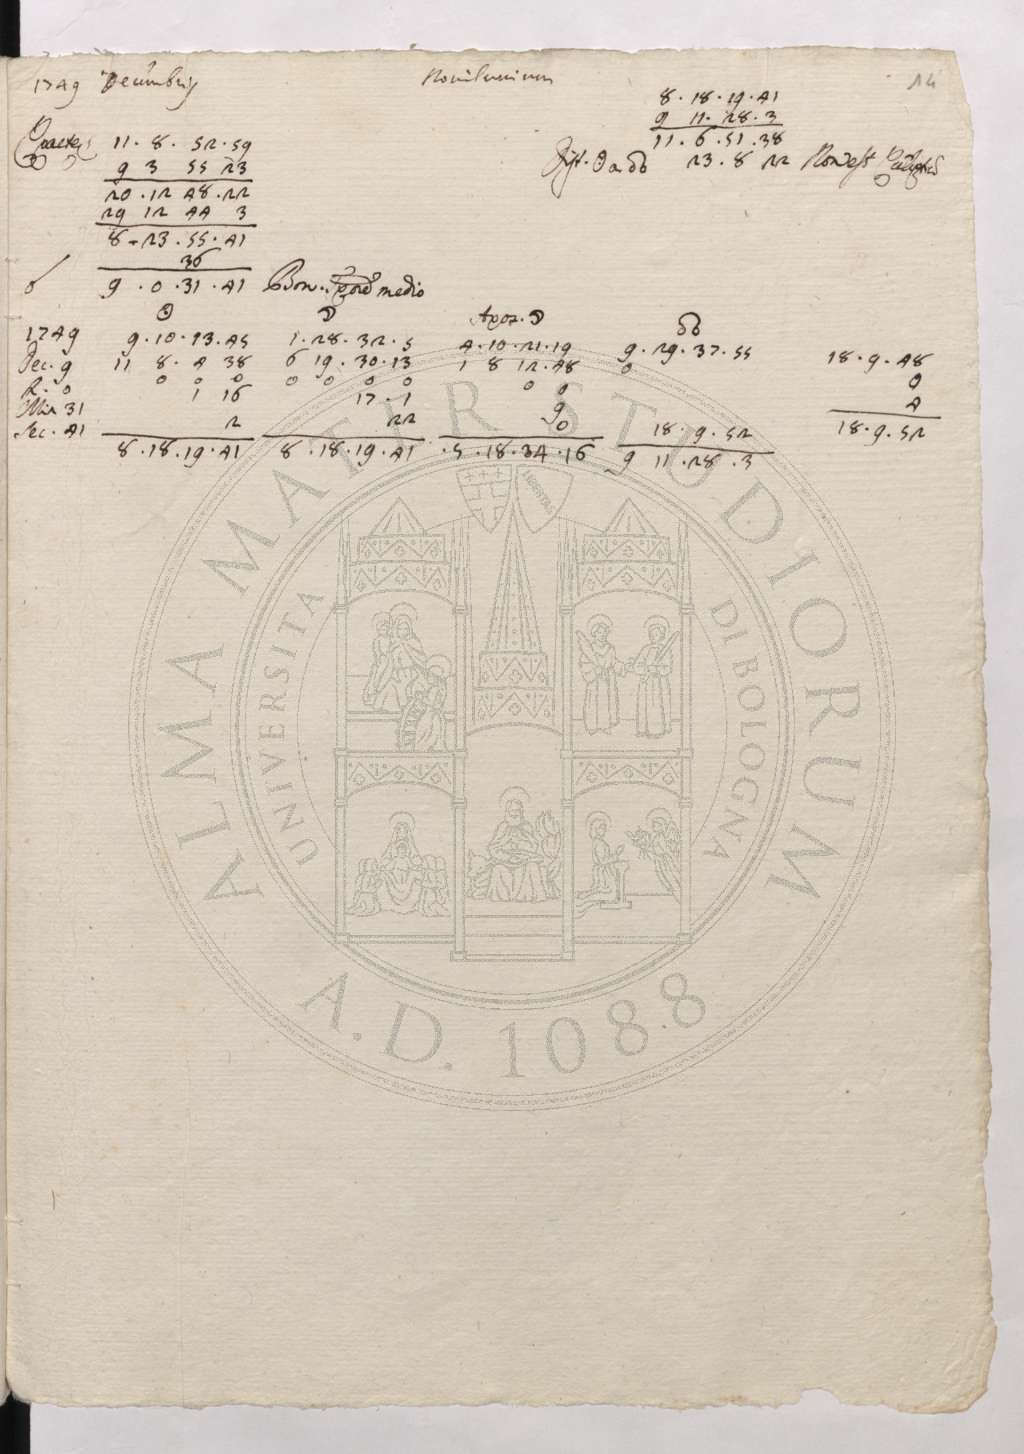 1749 Decembris
Novilunium
14
8 . 18 . 19 . 41
9 11 . 28 . 3
11 . 6 . 51 . 38
Dist. ☉ a ☊ 23 . 8 22 Non est
11 . 8 . 52 . 59
9 3 55 23
20 . 12 48 . 22
29 12 44 3
8 . 23 . 55 . 41
36
☌ 9 . 0 . 31 . 41 Bon. medio
☉ ☽ Apog. ☽ ☊
1749 9 . 10 . 13 . 45 1 . 28 . 32 . 5 4 . 10 . 21 . 19 9 . 29 . 37 . 55 18 . 9 . 48
Dec. 9 11 8 . 4 38 6 19 . 30 . 13 1 8 12 . 48 0 0
H. 0 0 0 0 0 0 0 0 0 0 4
Min 31 1 16 17 . 1 9
Sec. 41 2 22 0 18 . 9 . 52 18 . 9 . 52
8 . 18 . 19 . 41 8 . 18 . 19 . 41 . 5 . 18 . 34 . 16 9 11 . 28 . 3
ALMA MATER STUDIORUM
UNIVERSITA DI BOLOGNA
LIBERTAS
A.D. 1088